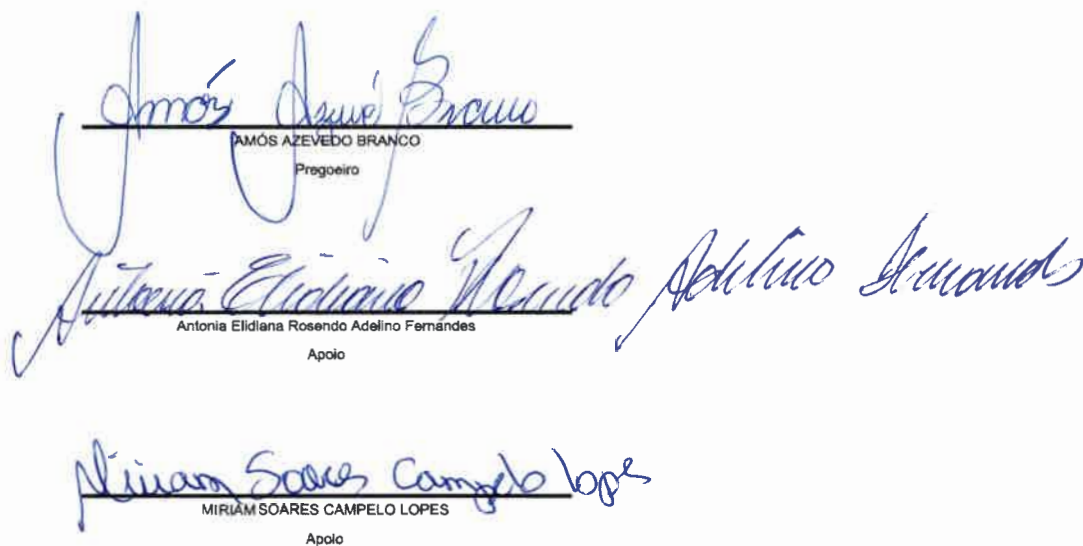 Amós Azevedo Branco
AMÓS AZEVEDO BRANCO
Pregoeiro
Antonia Elidiana Rosendo Adelino Fernandes
Antonia Elidiana Rosendo Adelino Fernandes
Apoio
Miriam Soares Campelo Lopes
MIRIAM SOARES CAMPELO LOPES
Apoio